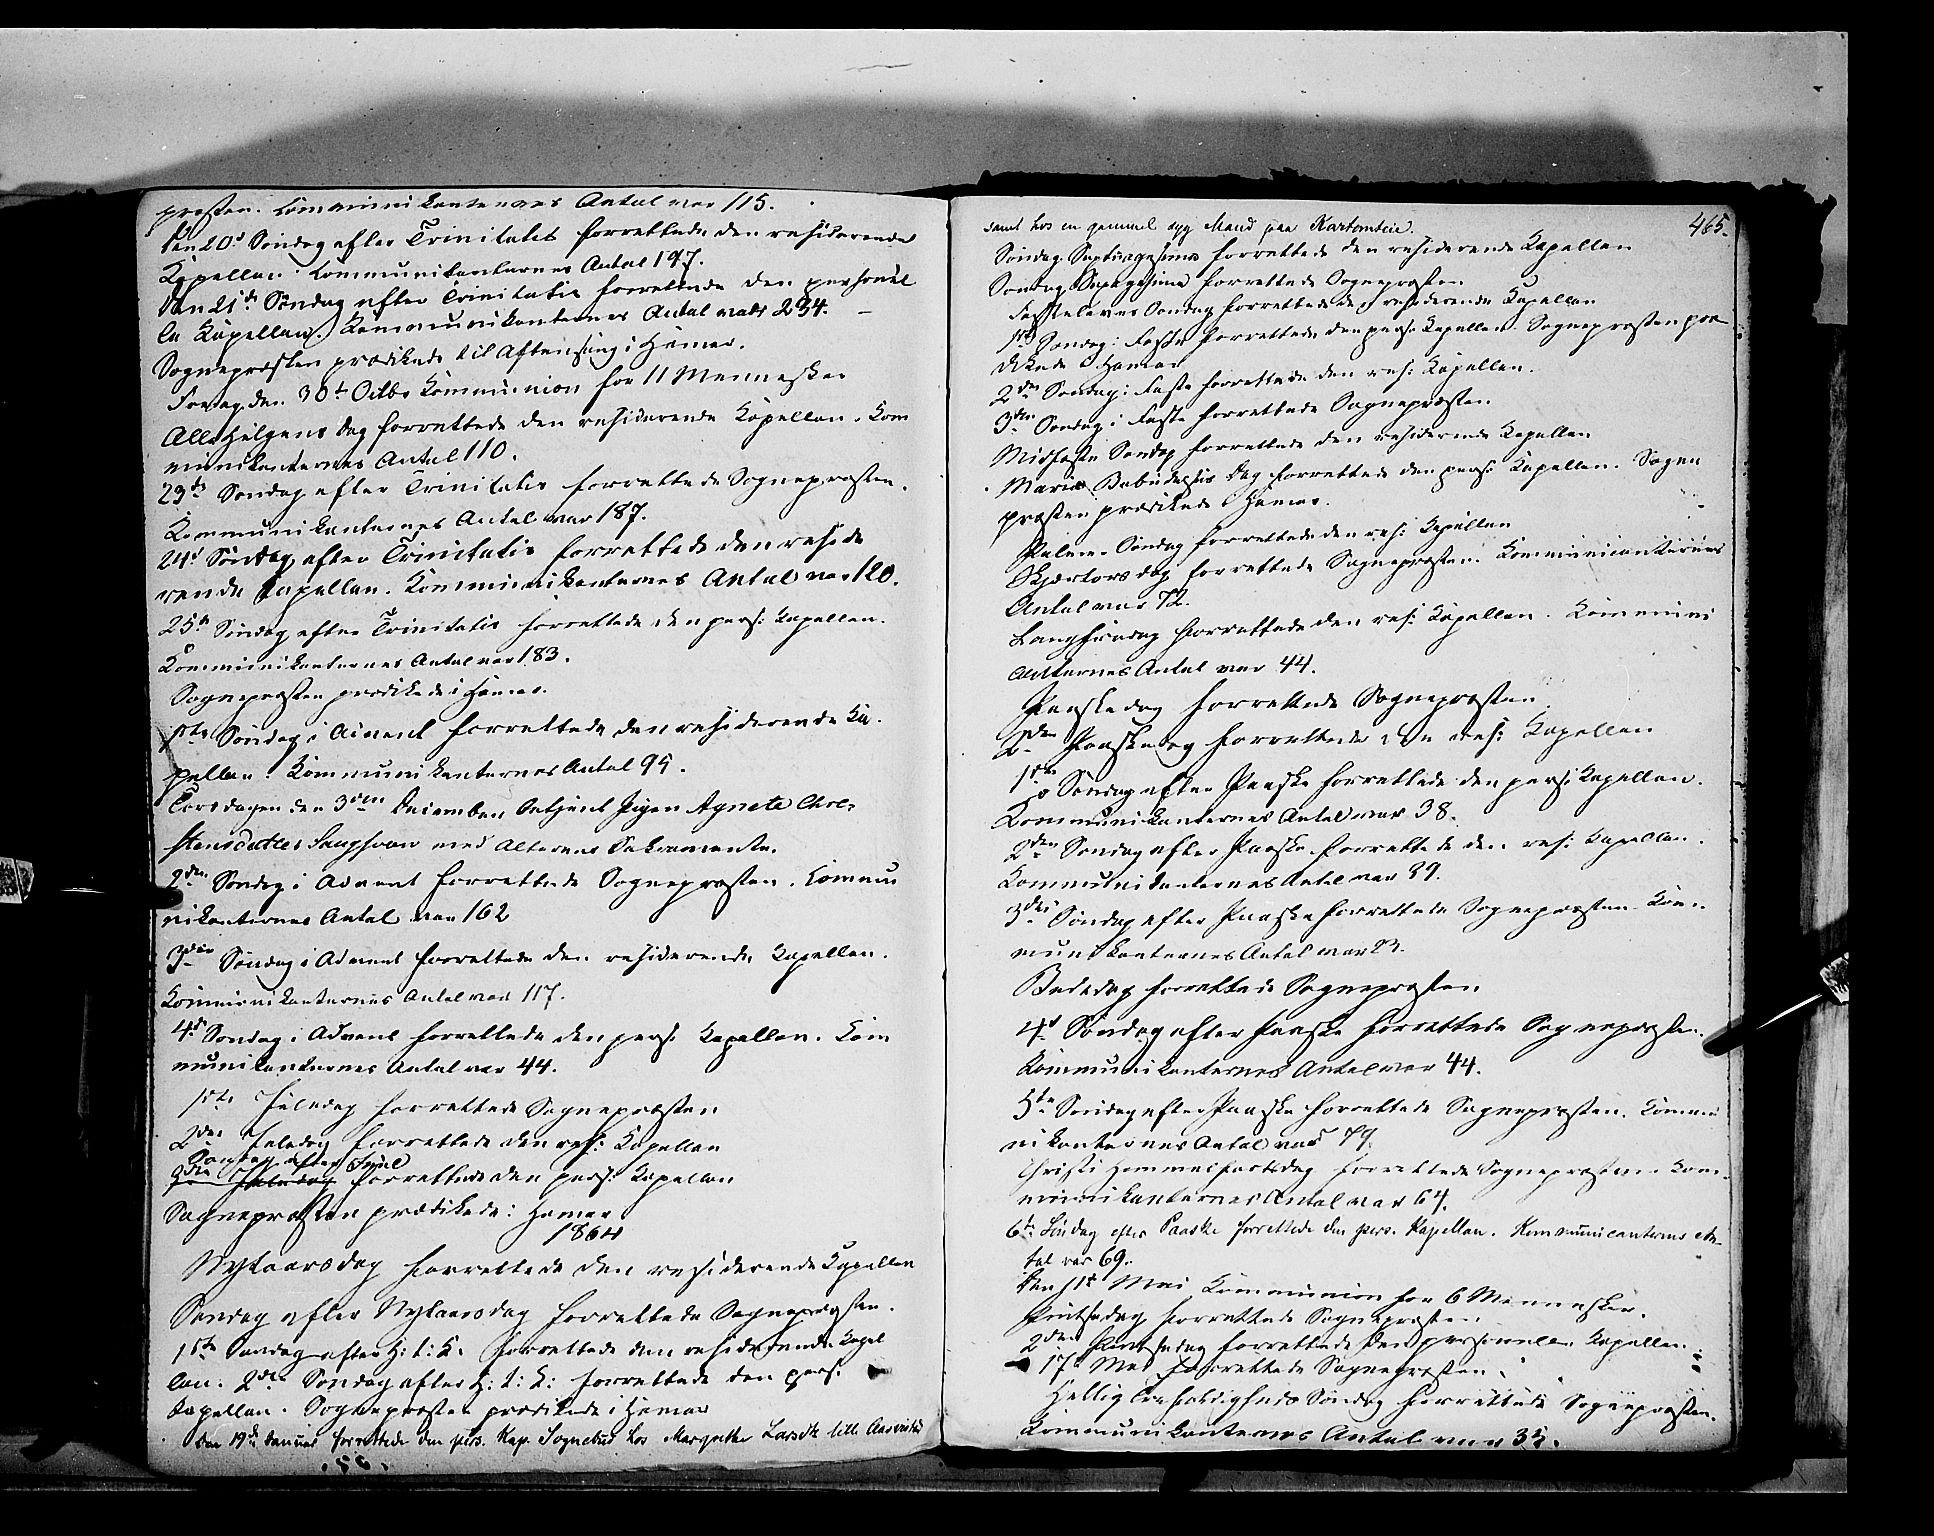 præsten. Kommunikanternes Antal var 115.
Den 20d Søndag efter Trinitatis forrettede den residerende
Kapellan. Kommunikanternes Antal 197.
Den 21de Søndag efter Trinitatis forrettede den personel
le Kapellan. Kommunikanternes Antal var 234.
Sognepræsten prædikede til Aftensang i Hamar.
Fredag den 30t Octbr Kommunion for 11 Mennesker
Alle Helgens Dag forrettede den residerende Kapellan. Kom
munikanternes Antal 110.
23de Søndag efter Trinitatis forrettede Sognepræsten.
Kommunikanternes Antal var 187.
24d Søndag efter Trinitatis forrettede den reside
rende Kapellan. Kommunikanternes Antal var 120.
25d Søndag efter Trinitatis forrettede den pers: Kapellan.
Kommunikanternes Antal var 183.
Sognepræsten prædikede i Hamar.
1ste Søndag i Advent forrettede den residerende Ka-
pellan. Kommunikanternes Antal 95.
Torsdagen den 3den December betjent Pigen Agnete Chri-
stensdatter med Alterens Sakramente.
2den Søndag i Advent forrettede Sognepræsten. Kommu
nikanternes Antal var 162
3die Søndag i Advent forrettede den residerende Kapellan.
Kommunikanternes Antal var 117.
4d Søndag i Advent forrettede den pers: Kapellan. Kom
munikanternes Antal var 44.
1ste Juledag forrettede Sognepræsten
2den Juledag forrettede den res: Kapellan
Søndag efter Juul
3die Juledag forrettede den pers: Kapellan
Sognepræsten prædikede i Hamar
1864
Nytaarsdag forrettede den residerende Kapellan
Søndag efter Nytaarsdag forrettede Sognepræsten.
1ste Søndag efter H: t: K: forrettede den residerende Kapel
lan. 2den Søndag efter H: t: K: forrettede den pers:
Kapellan. Sognepræsten prædikede i Hamar
den 19de Januar forrettede den pers. Kap. Sognebud hos Margrethe Larsdtr lille
465.
samt hos en gammel syg Mand paa
Søndag Septuagesima forrettede den residerende Kapellan
Søndag Sexagesima forrettede Sognepræsten
Fastelavns Søndag forrettede d. residerende Kapellan
1ste Søndag i Faste forrettede den pers: Kapellan. Sognepræsten præ
dikede i Hamar
2den Søndag i Faste forrettede den res: Kapellan.
3den Søndag i Faste forrettede Sognepræsten
Midfaste Søndag forrettede den residerende Kapellan
Mariæ Bebudelses Dag forrettede den pers: Kapellan. Sogne
præsten prædikede i Hamar.
Palme-Søndag forrettede den res: Kapellan
Skjærtorsdag forrettede Sognepræsten. Kommunicanternes
Antal var 72.
Langfredag forrettede den res: Kapellan. Kommuni
canternes Antal var 44.
Paaskedag forrettede Sognepræsten
2den Paaskedag forrettede den res: Kapellan
1ste Søndag efter Paaske forrettede den pers: Kapellan.
Kommunikanternes Antal var 38.
2den Søndag efter Paaske forrettede den res: Kapellan.
Kommunikanternes Antal var 89.
3die Søndag efter Paaske forrettede Sognepræsten. Kom-
munikanternes Antal var
Bededag forrettede Sognepræsten.
4d Søndag efter Paaske forrettede Sognepræsten.
Kommunikanternes Antal var 44.
5te Søndag efter Paaske forrettede Sognepræsten. Kommu
nikanternes Antal var 79.
Christi Himmelfartsdag forrettede Sognepræsten. Kom-
munikanternes Antal var 64.
6te Søndag efter Paaske forrettede den pers. Kapellan. Kommunicanternes An-
tal var 69.
Den 11t Mai Kommunion for 6 Mennesker.
Pintsedag forrettede Sognepræsten
2den Pintsedag forrettede den personelle Kapellan.
17d Mai forrettede Sognepræsten.
Hellig Trefoldigheds Søndag forrettede Sognepræsten.
Kommunikanternes Antal var 35.